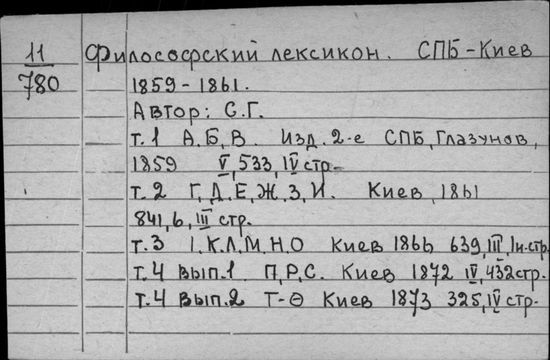 11 Философский лексикон. СПБ-Киев
780 1859-1861.
Автор: С.Г.
т.1 А, Б, В. Изд. 2-е СПБ, Глазунов,
1859 V, 533, IV стр.
т.2 Г, Д, Е, Ж, З, И. Киев, 1861
841, 6, III стр.
т.3 I, К, Л, М, Н, О Киев 1866 639, III, 1н.стр.
т.4 вып.1 П, Р, С. Киев 1872 IV, 432 стр.
т.4 вып.2 Т-Ѳ Киев 1873 325, IV стр.